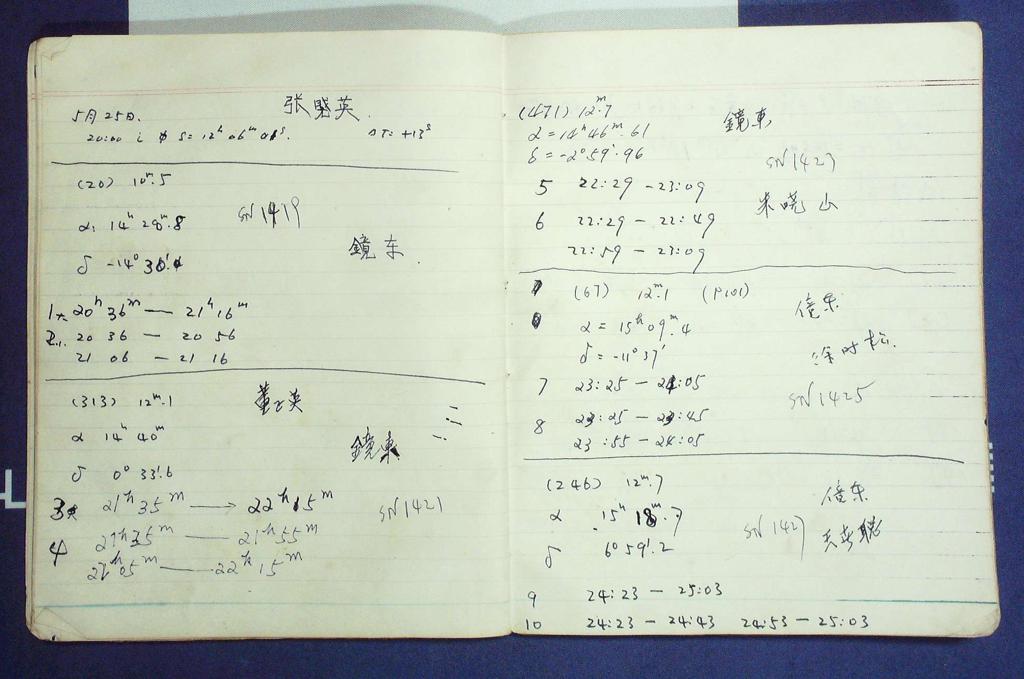 张 英
5月25日.
20:00 S=12ʰ 06ᵐ ΔT= +13ˢ
(20) 10ᵐ.5
α: 14ʰ 28ᵐ.8 SN 1419
δ -14° 鏡东
1 20ʰ 36ᵐ — 21ʰ 16ᵐ
2 20 36 — 20 56
21 06 — 21 16
(313) 12ᵐ.1 董 英
α 14ʰ 40ᵐ 鏡東
δ 0° 33'.6
3 21ʰ 35ᵐ → 22ʰ 15ᵐ SN 1421
4 21ʰ 35ᵐ — 21ʰ 55ᵐ
22ʰ 05ᵐ — 22ʰ 15ᵐ
(471) 12ᵐ.7 鏡東
α = 14ʰ 46ᵐ.61
δ = -2° 59'.96 SN 1423
5 22:29 - 23:09 朱晓山
6 22:29 - 22:49
22:59 - 23:09
(67) 12ᵐ.1 (P101)
α = 15ʰ 09ᵐ.4
δ = -11° 37'
7 23:25 - 24:05 SN 1425
8 23:25 - 23:45
23:55 - 24:05
(246) 12ᵐ.7
α 15ʰ 18ᵐ.7 SN 1427
δ 6° 59'.2
9 24:23 - 25:03
10 24:23 - 24:43 24:53 - 25:03